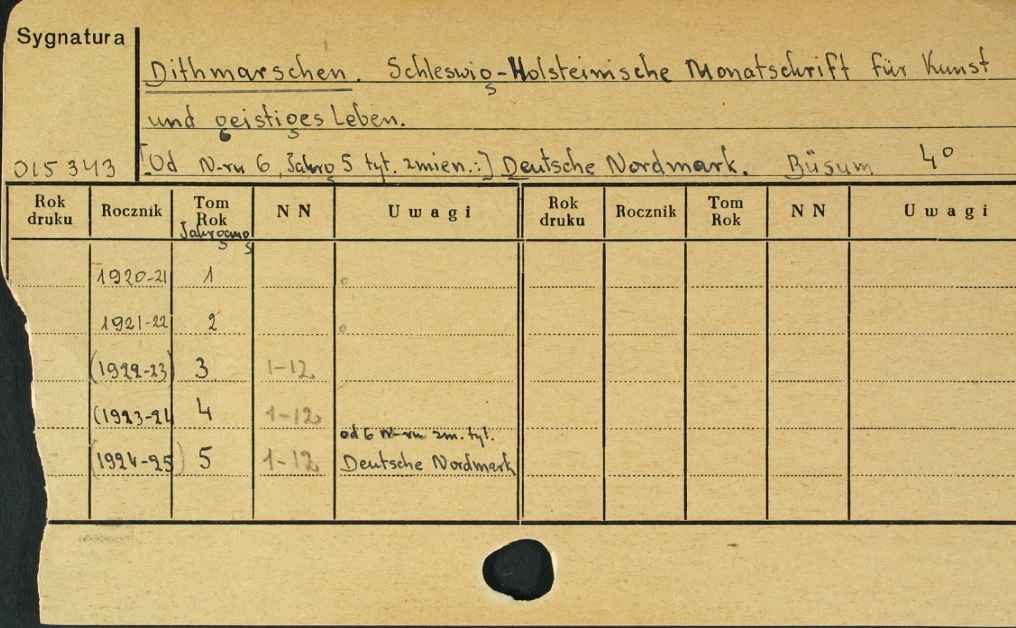 Sygnatura
Dithmarschen. Schleswig-Holsteinische Monatschrift für Kunst
und geistiges Leben.
015343 [Od N-ru 6, Jahrg 5 tyt. zmien.:] Deutsche Nordmark. Büsum 4°
Rok druku Rocznik Tom Rok Jahrgang NN Uwagi Rok druku Rocznik Tom Rok NN Uwagi
1920-21 1
1921-22 2
(1922-23) 3 1-12
(1923-24 4 1-12
od 6 N-ru zm. tyt.
(1924-25) 5 1-12 Deutsche Nordmark